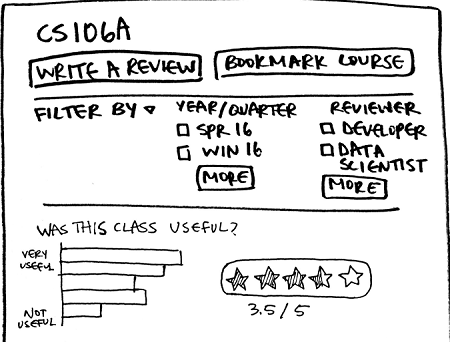 CS106A
WRITE A REVIEW
BOOKMARK COURSE
FILTER BY
YEAR/QUARTER
SPR 16
WIN 16
MORE
REVIEWER
DEVELOPER
DATA
SCIENTIST
MORE
WAS THIS CLASS USEFUL?
VERY
USEFUL
NOT
USEFUL
3.5/5